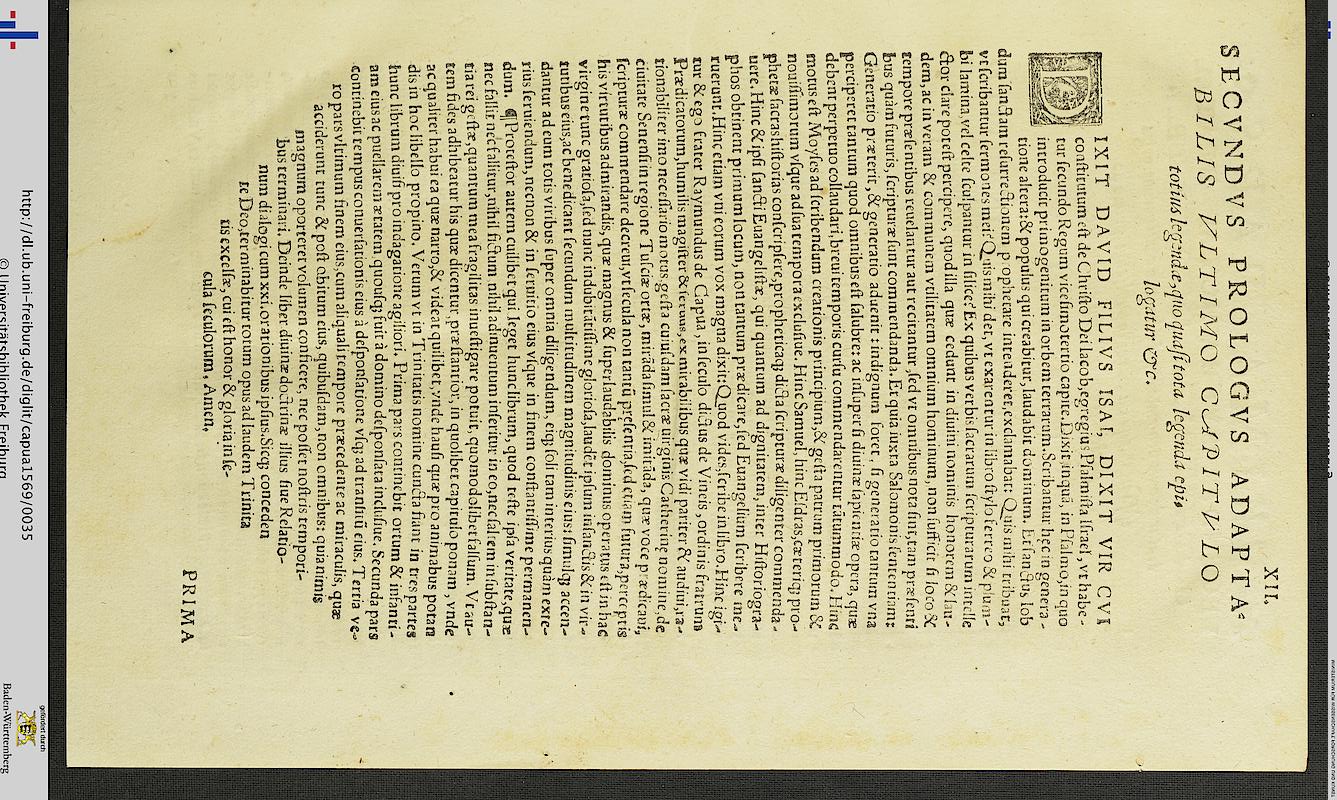 XII.
SECVNDVS PROLOGVS ADAPTA-
BILIS VLTIMO CAPITVLO
totius legendæ, quo quasi tota legenda epi-
logatur &c.
DIXIT DAVID FILIVS ISAI, DIXIT VIR CVI
constitutum est de Christo Dei Iacob, egregius Psalmista Israel, vt habe-
tur secundo Regum vicesimotertio capite. Dixit, inquā, in Psalmo, in quo
introducit primogenitum in orbem terrarum. Scribantur hęc in genera-
tione altera: & populus qui creabitur, laudabit dominum. Et sanctus, Iob
dum sanctam resurrectionem prophetare intenderet, exclamabat: Quis mihi tribuat,
vt scribantur sermones mei? Quis mihi det, vt exarentur in libro stylo ferreo & plum-
bi lamina, vel celte sculpantur in silice? Ex quibus verbis sacrarum scripturarum intelle
ctor clare potest percipere, quod illa quæ cedunt in diuini nominis honorem & lau-
dem, ac in veram & communem vtilitatem omnium hominum, non sufficit si loco &
tempore præsentibus reuelantur aut recitantur, sed vt omnibus nota sint, tam præsenti
bus quàm futuris, scripturæ sunt commendanda. Et quia iuxta Salomonis sententiam:
Generatio præterit, & generatio aduenit: indignum foret, si generatio tantum vna
perciperet tantum quod omnibus est salubre: ac insuper si diuinæ sapientiæ opera, quæ
debent perpetuo collaudari, breui temporis cursu commendarentur tātummodo. Hinc
motus est Moyses ad scribendum creationis principium, & gesta patrum primorum &
nouissimorum vsque ad sua tempora exclusiue. Hinc Samuel, hinc Esdras, cæteriq; pro-
phetæ sacras historias conscripsere, propheticaq; dicta scripturæ diligenter commenda-
uere. Hinc & ipsi sancti Euangelistæ, qui quantum ad dignitatem, inter Historiogra-
phos obtinent primum locum, non tantum prædicare, sed Euangelium scribere me-
ruerunt. Hinc etiam vni eorum vox magna dixit: Quod vides, scribe in libro. Hinc igi-
tur & ego frater Raymundus de Capua, in seculo dictus de Vineis, ordinis fratrum
Prædicatorum, humilis magister & seruus, ex mirabilibus quæ vidi pariter & audiui, ra-
tionabiliter imo necessario motus, gesta cuiusdam sacræ uirginis Catherinę nomine, de
ciuitate Senensi in regione Tusciæ ortæ, mirāda simul & imitāda, quæ voce prædicaui,
scripturæ commendare decreui, vt secula non tantū præsentia, sed etiam futura, perceptis
his virtutibus admirandis, quæ magnus & superlaudabilis dominus operatus est in hac
virgine tum gratiosa, sed nunc indubitātissime gloriosa, laudēt ipsum in sanctis & in vir-
tutibus eius, ac benedicant secundum multitudinem magnitudinis eius: simulq; accen-
dantur ad eum totis viribus super omnia diligendum, eiq; soli tam interius quàm exte-
rius seruiendum, necnon & in seruitio eius vsque in finem constantissime permanen-
dum. ¶ Protestor autem cuilibet qui leget hunc librum, quod teste ipsa veritate, quæ
nec fallit nec fallitur, nihil fictum nihil adinuentum inseritur in eo, nec falsum in substan-
tia rei gestæ, quantum mea fragilitas inuestigare potuit, quomodolibet falsum. Vt au-
tem fides adhibeatur his quæ dicentur, præstantior, in quolibet capitulo ponam, vnde
ac qualiter habui ea quæ narro, & videat quilibet, vnde hausi quæ pro animabus potan
dis in hoc libello propino. Verum vt in Trinitatis nomine cuncta fiant, in tres partes
hunc librum diuisi pro indagatione agiliori. Prima pars continebit ortum & infanti-
am eius ac puellarem ætatem, quousq; fuit à domino desponsata inclusiue. Secunda pars
continebit tempus conuersationis eius à desponsatione vsq; ad transitū eius. Tertia ve-
ro pars vltimum finem eius, cum aliquali tempore præcedente ac miraculis, quæ
acciderunt tunc & post obitum eius, quibusdam, non omnibus: quia nimis
magnum oporteret volumen conficere, nec posset nostris tempori-
bus terminari. Deinde liber diuinæ doctrinæ illius siue Relatio-
num dialogi cum xxi. orationibus ipsius. Sicq; conceden
te Deo, terminabitur totum opus ad laudem Trinita
tis excelsæ, cui est honor & gloria in se-
cula seculorum, Amen.
PRIMA
http://dl.ub.uni-freiburg.de/diglit/capua1569/0035
© Universitätsbibliothek Freiburg
gefördert durch
Baden-Württemberg